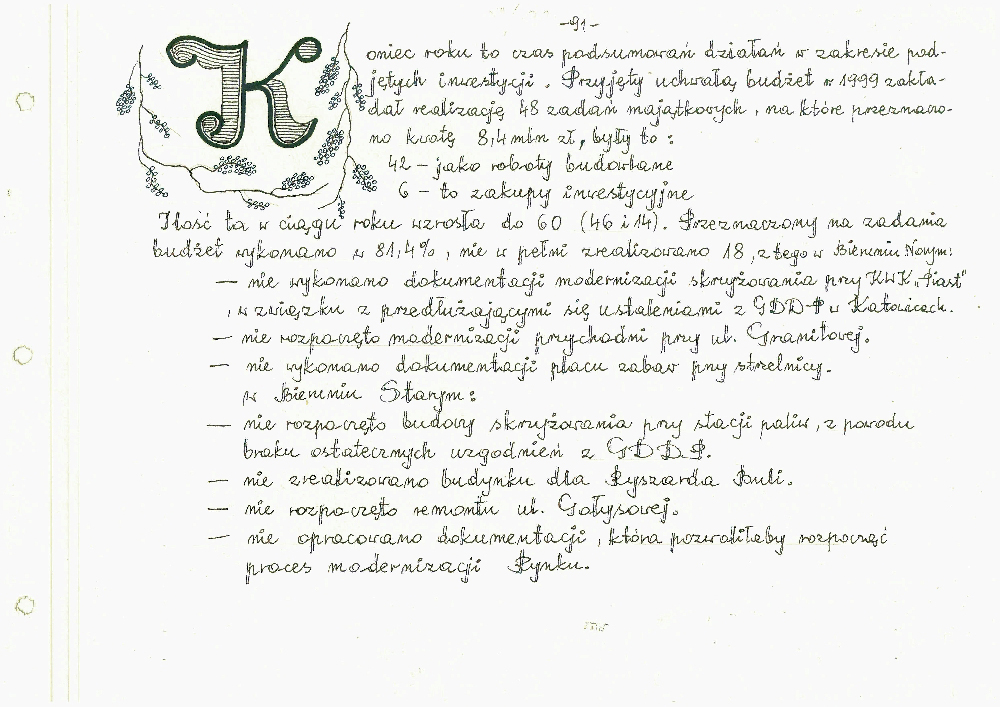 -91-
Koniec roku to czas podsumowań działań w zakresie pod-
jętych inwestycji. Przyjęty uchwałą budżet w 1999 zakła-
dał realizację 48 zadań majątkowych, na które przeznaczo-
no kwotę 8,4 mln zł, były to:
42 – jako roboty budowlane
6 – to zakupy inwestycyjne
Ilość ta w ciągu roku wzrosła do 60 (46 i 14). Przeznaczony na zadania
budżet wykonano w 81,4%, nie w pełni zrealizowano 18, z tego w Bieruniu Nowym:
— nie wykonano dokumentacji modernizacji skrzyżowania przy KWK „Piast"
, w związku z przedłużającymi się ustaleniami z GDDP w Katowicach.
— nie rozpoczęto modernizacji przychodni przy ul. Granitowej.
— nie wykonano dokumentacji placu zabaw przy strzelnicy.
w Bieruniu Starym:
— nie rozpoczęto budowy skrzyżowania przy stacji paliw, z powodu
braku ostatecznych uzgodnień z GDDP.
— nie zrealizowano budynku dla Ryszarda Buli.
— nie rozpoczęto remontu ul. Gołysowej.
— nie opracowano dokumentacji, która pozwoliłaby rozpocząć
proces modernizacji Rynku.